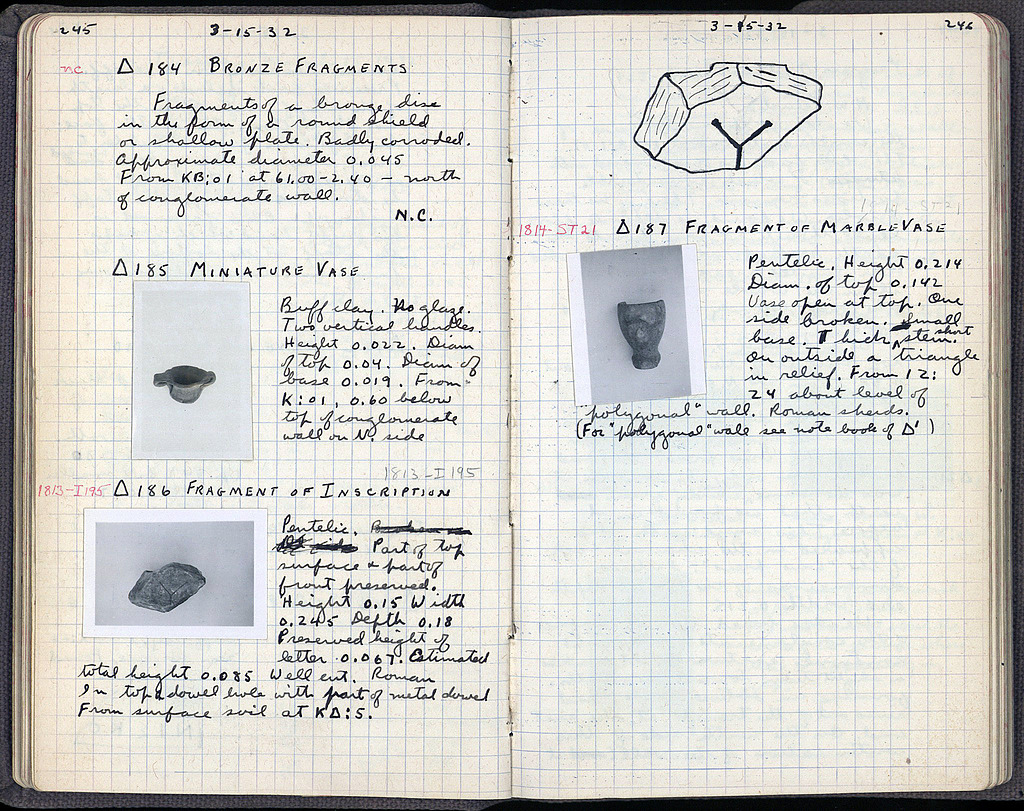 245
3-15-32
nc. Δ 184 BRONZE FRAGMENTS
Fragments of a bronze disc
in the form of a round shield
or shallow plate. Badly corroded.
Approximate diameter 0.045
From KB:01 at 61.00-2.40 — north
of conglomerate wall.
N.C.
Δ 185 MINIATURE VASE
Buff clay. No glaze.
Two vertical handles.
Height 0.022. Diam
of top 0.04. Diam of
base 0.019. From
K:01, 0.60 below
top of conglomerate
wall on N. side
1813-I 195
1813-I195 Δ 186 FRAGMENT OF INSCRIPTION
Pentelic. Broken on
Part of top
surface & part of
front preserved.
Height 0.15 Width
0.245 Depth 0.18
Preserved height of
letter 0.067. Estimated
total height 0.085 Well cut. Roman
In top a dowel hole with part of metal dowel
From surface soil at KΔ:5.
3-15-32
246
1814-ST21
1814-ST21 Δ187 FRAGMENT OF MARBLE VASE
Pentelic. Height 0.214
Diam. of top 0.142
Vase open at top. One
side broken. Small
base. Thick short stem.
On outside a triangle
in relief. From 12:
24 about level of
"polygonal" wall. Roman sherds.
(For "polygonal" wall see note book of Δ')